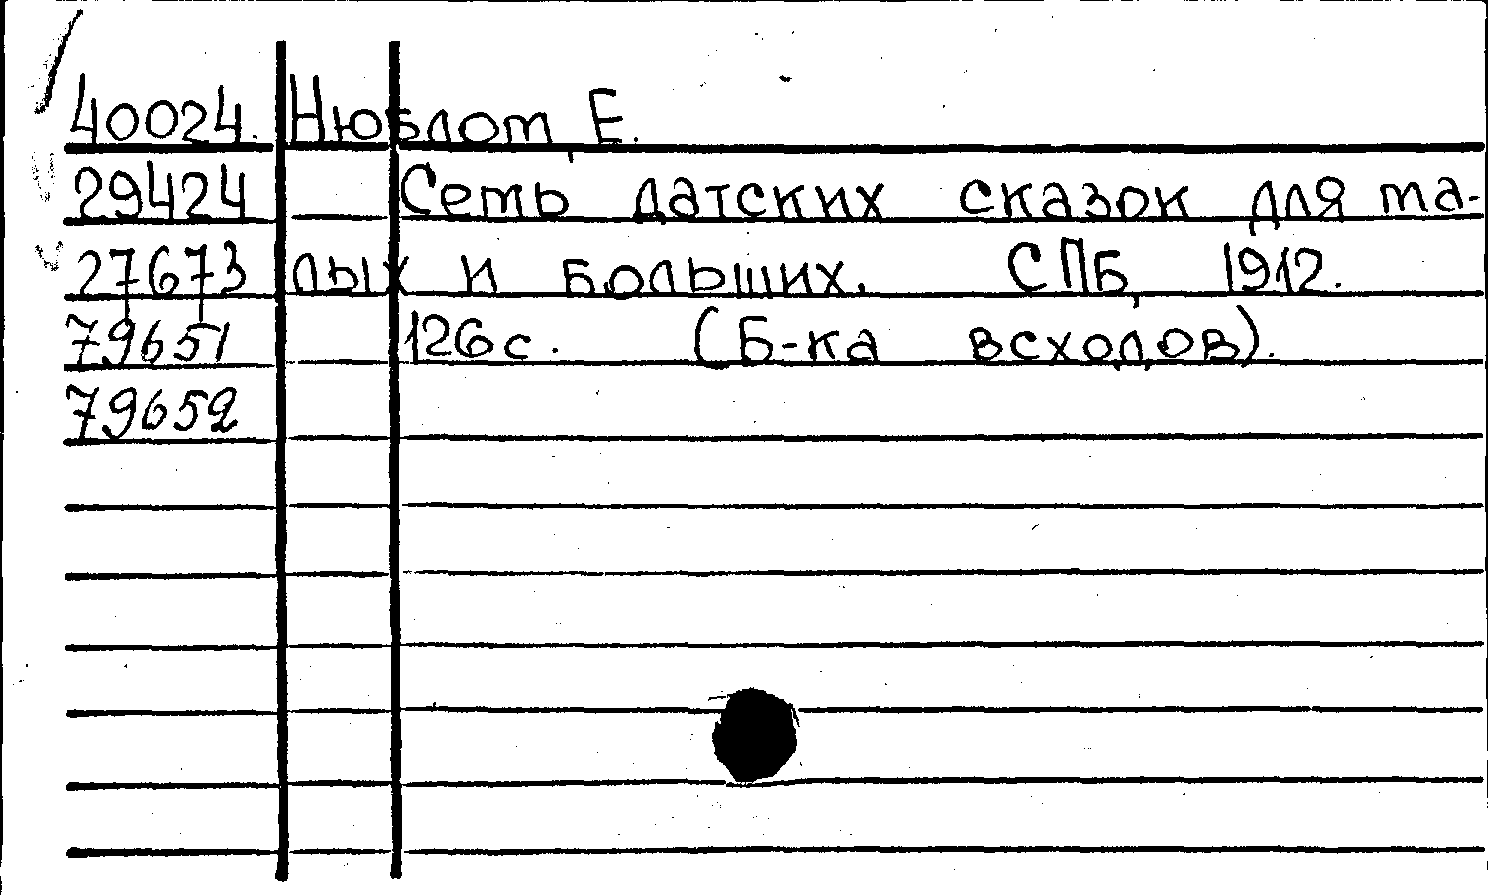 40024. Нюблот, Е.
29424 Семь датских сказок для ма-
27673 лых и больших. СПБ, 1912.
79651 126с. (Б-ка всходов).
79652